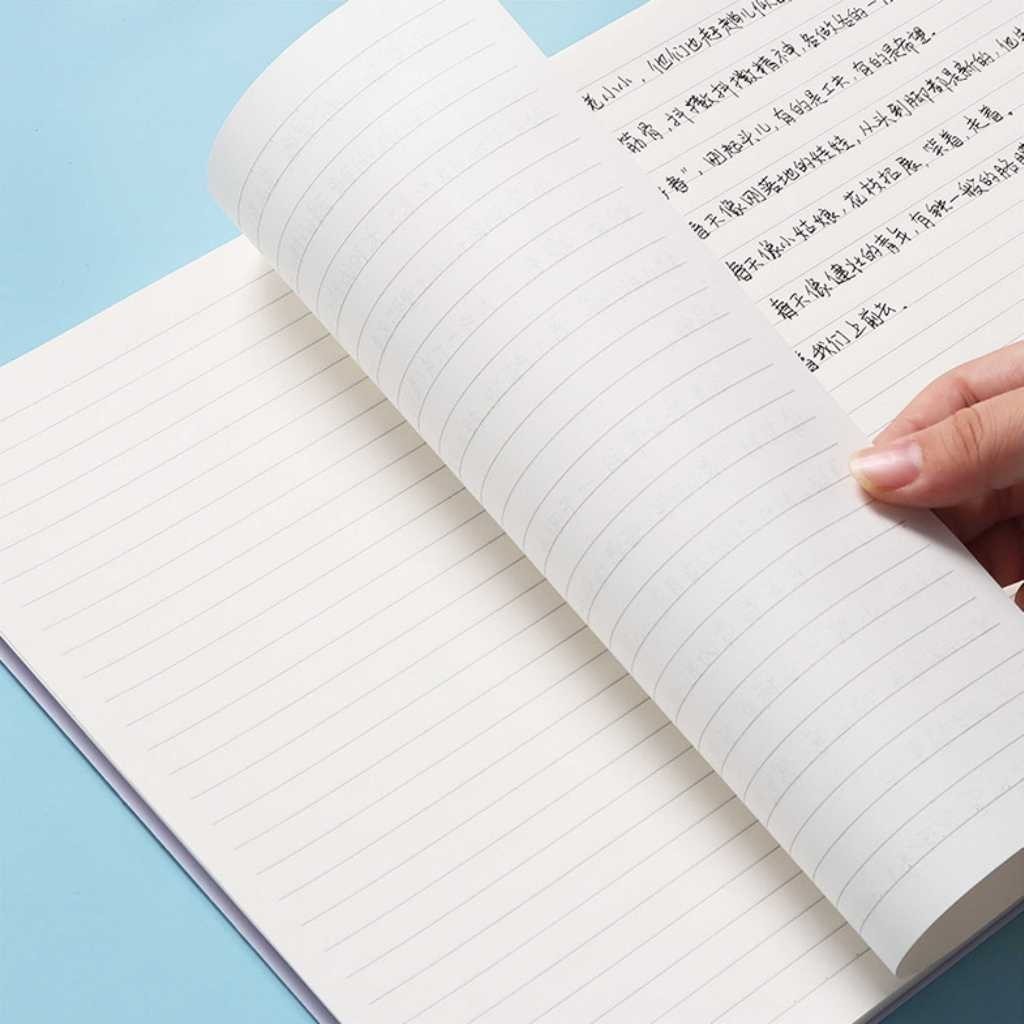 老小小，他们也赶趟儿似的
筋骨，抖擞抖擞精神，各做各的一
春”，刚起头儿，有的是工夫，有的是希望。
春天像刚落地的娃娃，从头到脚都是新的，他生
春天像小姑娘，花枝招展，笑着，走着。
春天像健壮的青年，有铁一般的胳膊
着我们上前去。